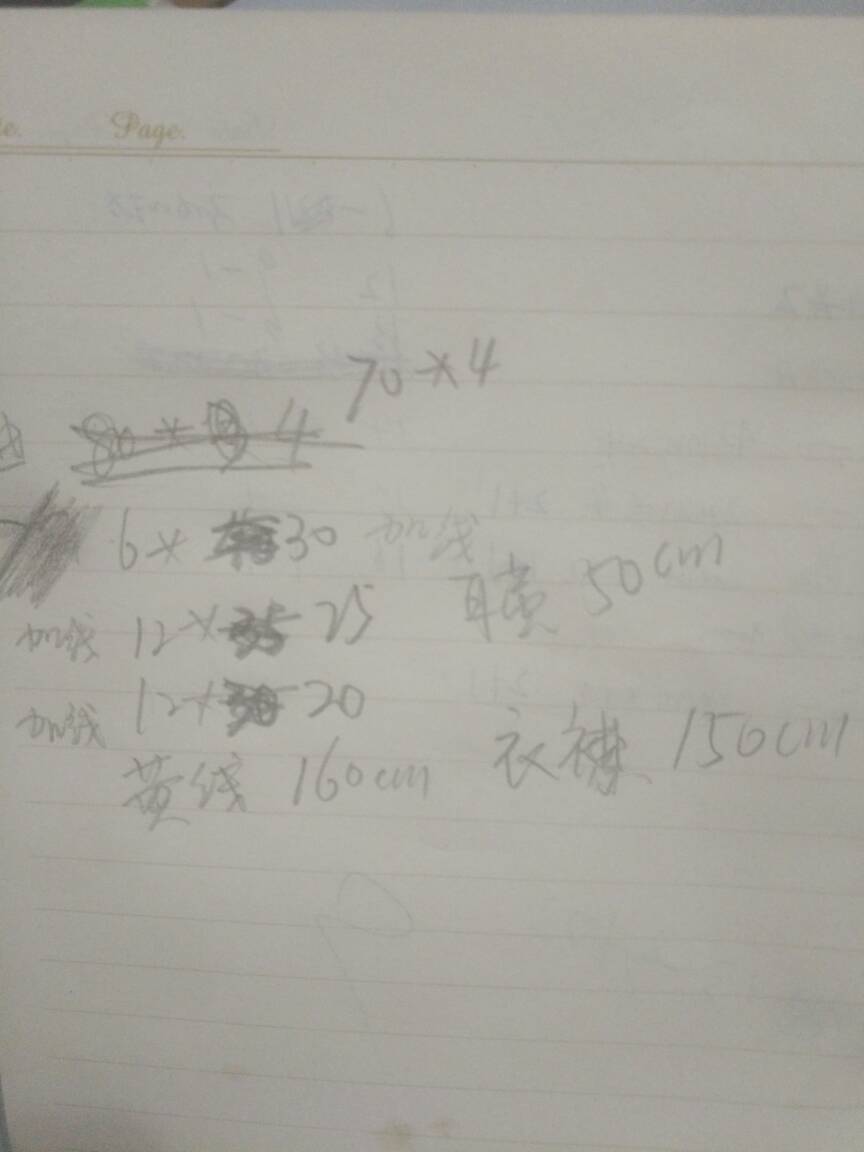 Page.
70 * 4
80 * 4
6 * 30 加线
耳黄 50cm
加线 12 * 25
加线 12 * 20
衣裤 150cm
黄线 160cm